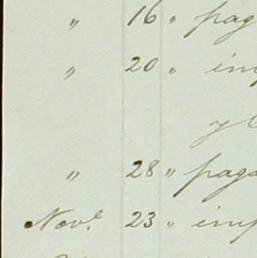 " 16 " pag
" 20 " imp
y
" 28 " paga
Nov.e 23 " imp